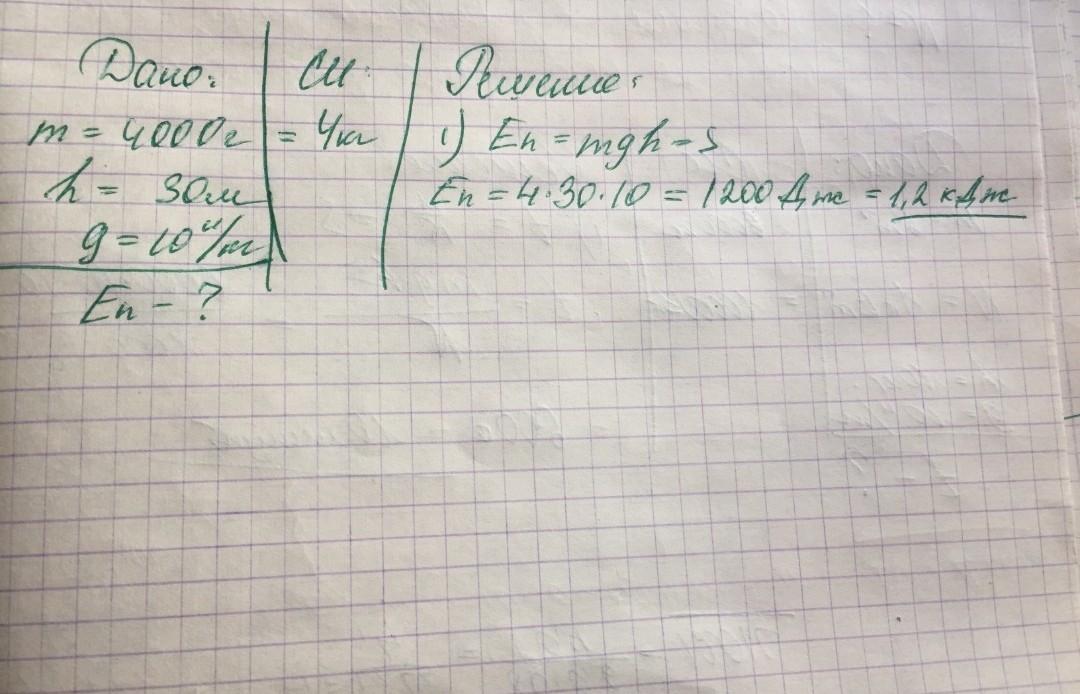 Дано: СИ: Решение:
m = 4000г = 4кг 1) Eп = mgh - S
h = 30м Eп = 4·30·10 = 1200 Дж = 1,2 кДж
g = 10 н/кг
Eп - ?